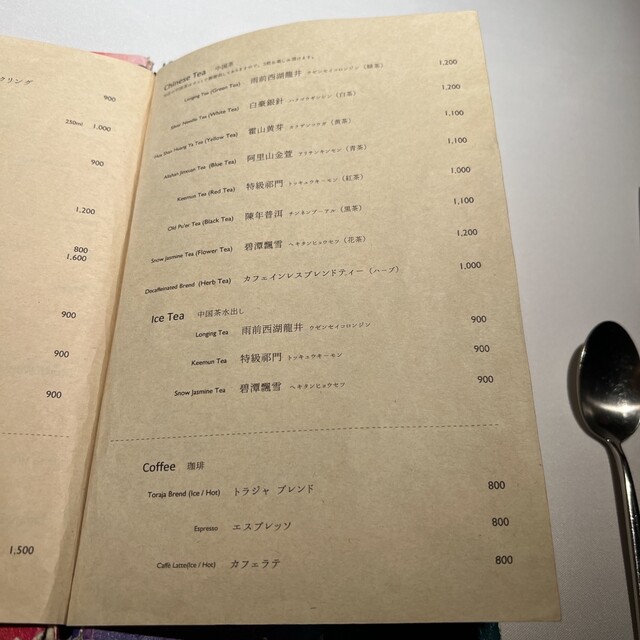 クリング
900
250ml 1,000
900
1,200
800
1,600
900
900
900
1,500
Chinese Tea 中国茶
Longing Tea (Green Tea) 雨前西湖龍井 ウゼンセイコロンジン（緑茶） 1,200
Silver Needle Tea (White Tea) 白豪銀針 （白茶） 1,200
Hua Shan Hoang Ya Tea (Yellow Tea) 霍山黄芽 （黄茶） 1,100
Alishan Jinxuan Tea (Blue Tea) 阿里山金萱 アリサンキンセン（青茶） 1,100
Keemun Tea (Red Tea) 特級祁門 トッキュウキーモン（紅茶） 1,000
Old Pu'er Tea (Black Tea) 陳年普洱 チンネンプーアル（黒茶） 1,100
Snow Jasmine Tea (Flower Tea) 碧潭飄雪 ヘキタンヒョウセツ（花茶） 1,200
Decaffeinated Brend (Herb Tea) カフェインレスブレンドティー（ハーブ） 1,000
Ice Tea 中国茶水出し
Longing Tea 雨前西湖龍井 ウゼンセイコロンジン 900
Keemun Tea 特級祁門 トッキュウキーモン 900
Snow Jasmine Tea 碧潭飄雪 ヘキタンヒョウセツ 900
Coffee 珈琲
Toraja Brend (Ice / Hot) トラジャ ブレンド 800
Espresso エスプレッソ 800
Caffè Latte(Ice / Hot) カフェラテ 800